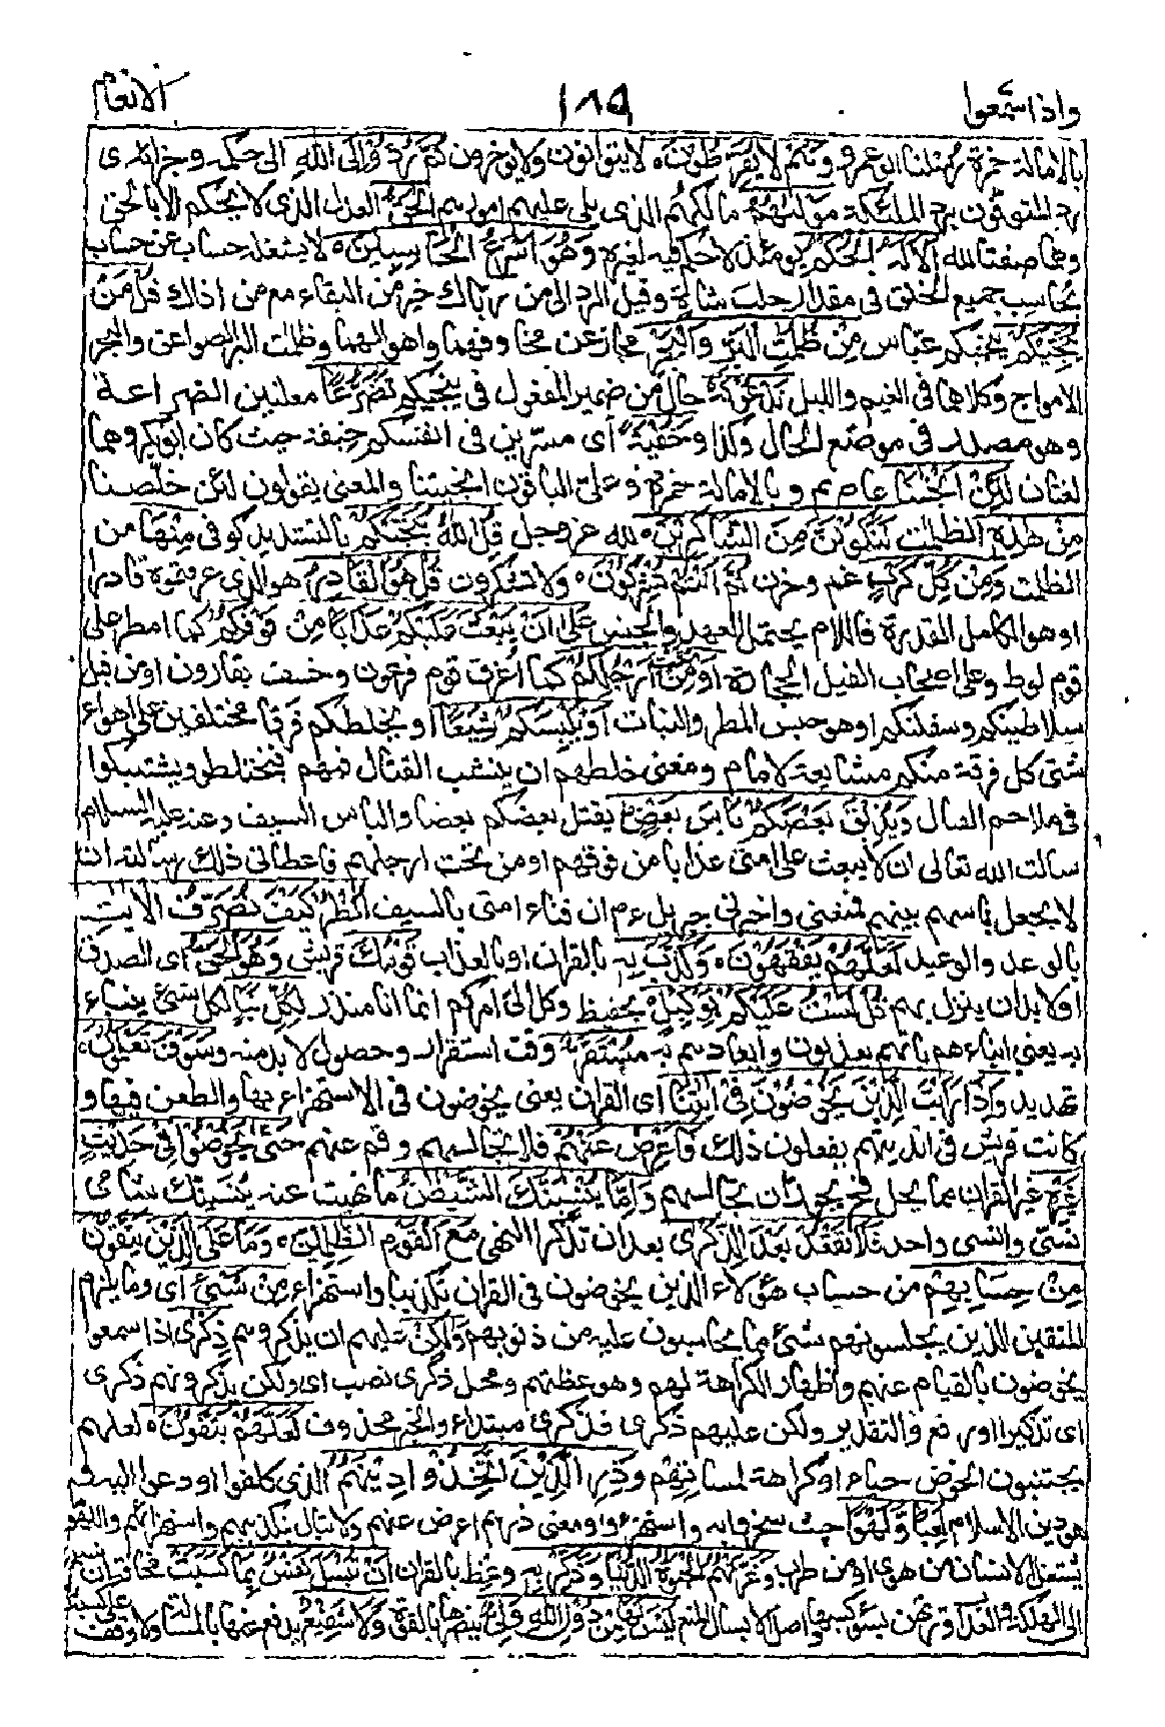 واذا سمعوا ١٨٩ الانعام
بالامالة حمزة رسلنا ابو عمرو وَهُمْ لَا يُفَرِّطُوْنَ لا يتوانون ولا يؤخرون ثُمَّ رُدُّوْٓا اِلَى اللّٰهِ الى حكمه وجزائه اى
رد المتوفون برد الملئكة مَوْلٰىهُمُ مالكهم الذى يلى عليهم امورهم الْحَقِّ العدل الذى لا يحكم الا بالحق
وهما صفتا لله اَلَا لَهُ الْحُكْمُ يومئذ لا حكم فيه لغيره وَهُوَ اَسْرَعُ الْحَاسِبِيْنَ لا يشغله حساب عن حساب
يحاسب جميع الخلق فى مقدار حلب شاة وقيل الرد الى من رباك خير من البقاء مع من اذاك قُلْ مَنْ
يُّنَجِّيْكُمْ ينجيكم عباس مِّنْ ظُلُمٰتِ الْبَرِّ وَالْبَحْرِ مجاز عن مخاوفهما واهوالهما وظلمت البر الصواعق والبحر
الامواج وكلاهما فى الغيم والليل تَدْعُوْنَهٗ حال من ضمير المفعول فى ينجيكم تَضَرُّعًا معلنين الضراعة
وهو مصدر فى موضع الحال وكذا وَخُفْيَةً اى مسرين فى انفسكم خيفة حيث كان ابوبكر وهما
لغتان لَئِنْ اَنْجٰنَا عاصم وبالامالة حمزة وعلى الباقون انجيتنا والمعنى يقولون لئن خلصنا
مِنْ هٰذِهٖ الظلمت لَنَكُوْنَنَّ مِنَ الشّٰكِرِيْنَ لله عز وجل قُلِ اللّٰهُ يُنَجِّيْكُمْ بالتشديد كوفى مِّنْهَا من
الظلمت وَمِنْ كُلِّ كَرْبٍ غم وحزن ثُمَّ اَنْتُمْ تُشْرِكُوْنَ ولا تشكرون قُلْ هُوَ الْقَادِرُ هو الذى عرفتموه قادرا
او هو الكامل القدرة فاللام يحتمل العهد والجنس عَلٰٓى اَنْ يَّبْعَثَ عَلَيْكُمْ عَذَابًا مِّنْ فَوْقِكُمْ كما امطر على
قوم لوط وعلى اصحاب الفيل الحجارة اَوْ مِنْ تَحْتِ اَرْجُلِكُمْ كما اغرق قوم فرعون وخسف بقارون او من قبل
سلاطينكم وسفلتكم او هو حبس المطر والنبات اَوْ يَلْبِسَكُمْ شِيَعًا او يخلطكم فرقا مختلفين على اهواء
شتى كل فرقة منكم مشايعة لامام ومعنى خلطهم ان ينشب القتال فيهم فيختلطوا ويشتبكوا
فى ملاحم القتال وَيُذِيْقَ بَعْضَكُمْ بَاْسَ بَعْضٍ يقتل بعضكم بعضا والباس السيف وعنه عليه السلام
سالت الله تعالى ان لا يبعث على امتى عذابا من فوقهم او من تحت ارجلهم فاعطانى ذلك وسالته ان
لا يجعل باسهم بينهم فمنعنى واخبرنى جبريل عم ان فناء امتى بالسيف اُنْظُرْ كَيْفَ نُصَرِّفُ الْاٰيٰتِ
بالوعد والوعيد لَعَلَّهُمْ يَفْقَهُوْنَ وَكَذَّبَ بِهٖ بالقران او بالعذاب قَوْمُكَ قريش وَهُوَ الْحَقُّ اى الصدق
او لا بد ان ينزل بهم قُلْ لَّسْتُ عَلَيْكُمْ بِوَكِيْلٍ بحفيظ وكل الى امركم انما انا منذر لِكُلِّ نَبَاٍ لكل شئ ينباء
به يعنى انباءهم بانهم يعذبون وايعادهم به مُّسْتَقَرٌّ وقت استقرار وحصول لا بد منه وَسَوْفَ تَعْلَمُوْنَ
تهديد وَاِذَا رَاَيْتَ الَّذِيْنَ يَخُوْضُوْنَ فِيْٓ اٰيٰتِنَا اى القران يعنى يخوضون فى الاستهزاء بها والطعن فيها و
كانت قريش فى انديتهم يفعلون ذلك فَاَعْرِضْ عَنْهُمْ فلا تجالسهم وقم عنهم حَتّٰى يَخُوْضُوْا فِيْ حَدِيْثٍ
غَيْرِهٖ غير القران مما يحل فح يجوز ان تجالسهم وَاِمَّا يُنْسِيَنَّكَ الشَّيْطٰنُ ما نهيت عنه يُنَسِّيَنَّك شامى
نسى وانسى واحد فَلَا تَقْعُدْ بَعْدَ الذِّكْرٰى بعد ان تذكر النهى مَعَ الْقَوْمِ الظّٰلِمِيْنَ وَمَا عَلَى الَّذِيْنَ يَتَّقُوْنَ
مِنْ حِسَابِهِمْ من حساب هؤلاء الذين يخوضون فى القران تكذيبا واستهزاء مِّنْ شَيْءٍ اى وما يلزم
المتقين الذين يجالسونهم شئ مما يحاسبون عليه من ذنوبهم وَّلٰكِنْ عليهم ان يذكروهم ذِكْرٰى اذا سمعوا
يخوضون بالقيام عنهم واظهار الكراهة لهم وموعظتهم ومحل ذكرى نصب اى ولكن يذكرونهم ذكرى
اى تذكيرا او رفع والتقدير ولكن عليهم ذكرى فذكرى مبتداء والخبر محذوف لَعَلَّهُمْ يَتَّقُوْنَ لعلهم
يجتنبون الخوض حياء او كراهة لمساءتهم وَذَرِ الَّذِيْنَ اتَّخَذُوْا دِيْنَهُمْ الذى كلفوا ودعوا اليه
هو دين الاسلام لَعِبًا وَّلَهْوًا حيث سخروا به واستهزءوا ومعنى ذرهم اعرض عنهم ولا تبال بتكذيبهم واستهزائهم واللهو
يشغل الانسان من هوى او من طرب وَّغَرَّتْهُمُ الْحَيٰوةُ الدُّنْيَا وَذَكِّرْ بِهٖ وعظ بالقران اَنْ تُبْسَلَ نَفْسٌ بِمَا كَسَبَتْ مخافة ان
الى الهلكة والعذاب وترتهن بسوء كسبها واصل الابسال المنع لَيْسَ لَهَا مِنْ دُوْنِ اللّٰهِ وَلِيٌّ ينصرها بالقوة وَّلَا شَفِيْعٌ يدفع عنها بالمسئلة ولا وقف